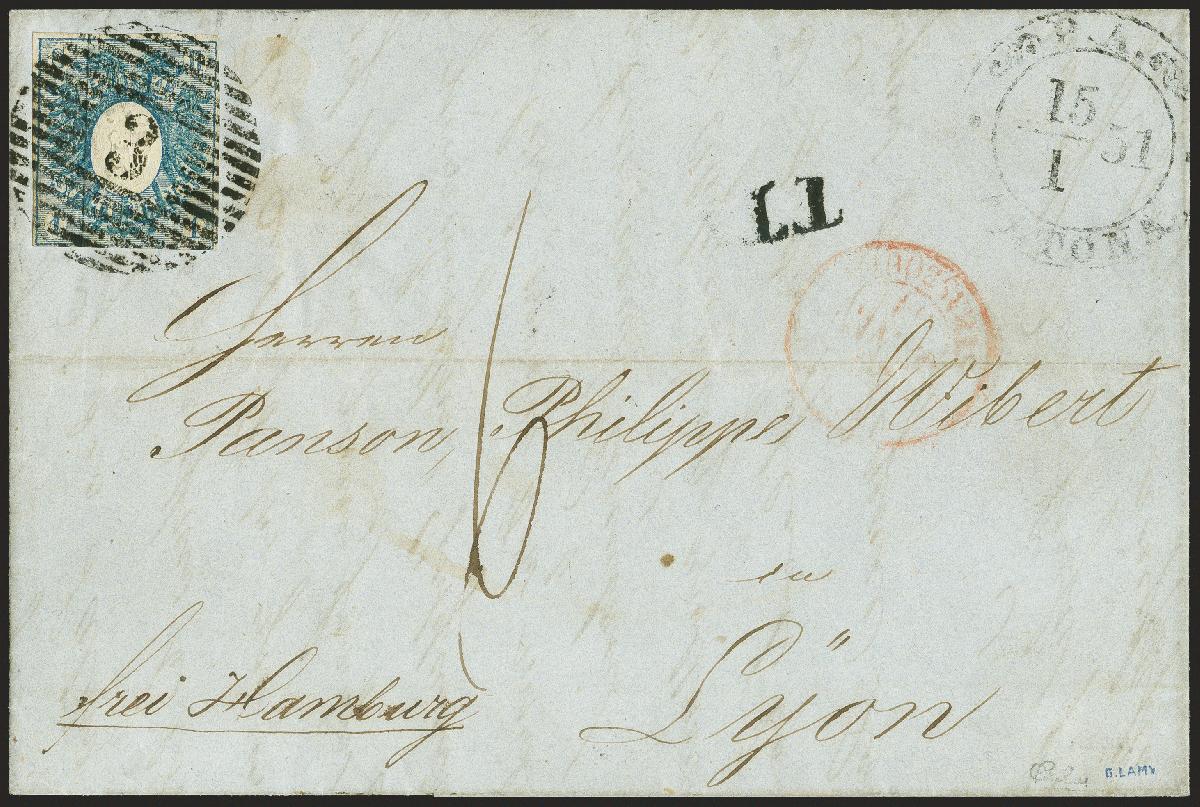 8
P. A.
15
1 51
ALTONA
TT
Herren
Panson, Philippe, Wibert
6
in
Lÿon
frei Hamburg
B. LAMY